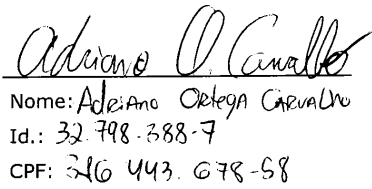 Adriano O. Carvalho
Nome: Adriano Ortega Carvalho
Id.: 32.798.388-7
CPF: 316 443. 678-58